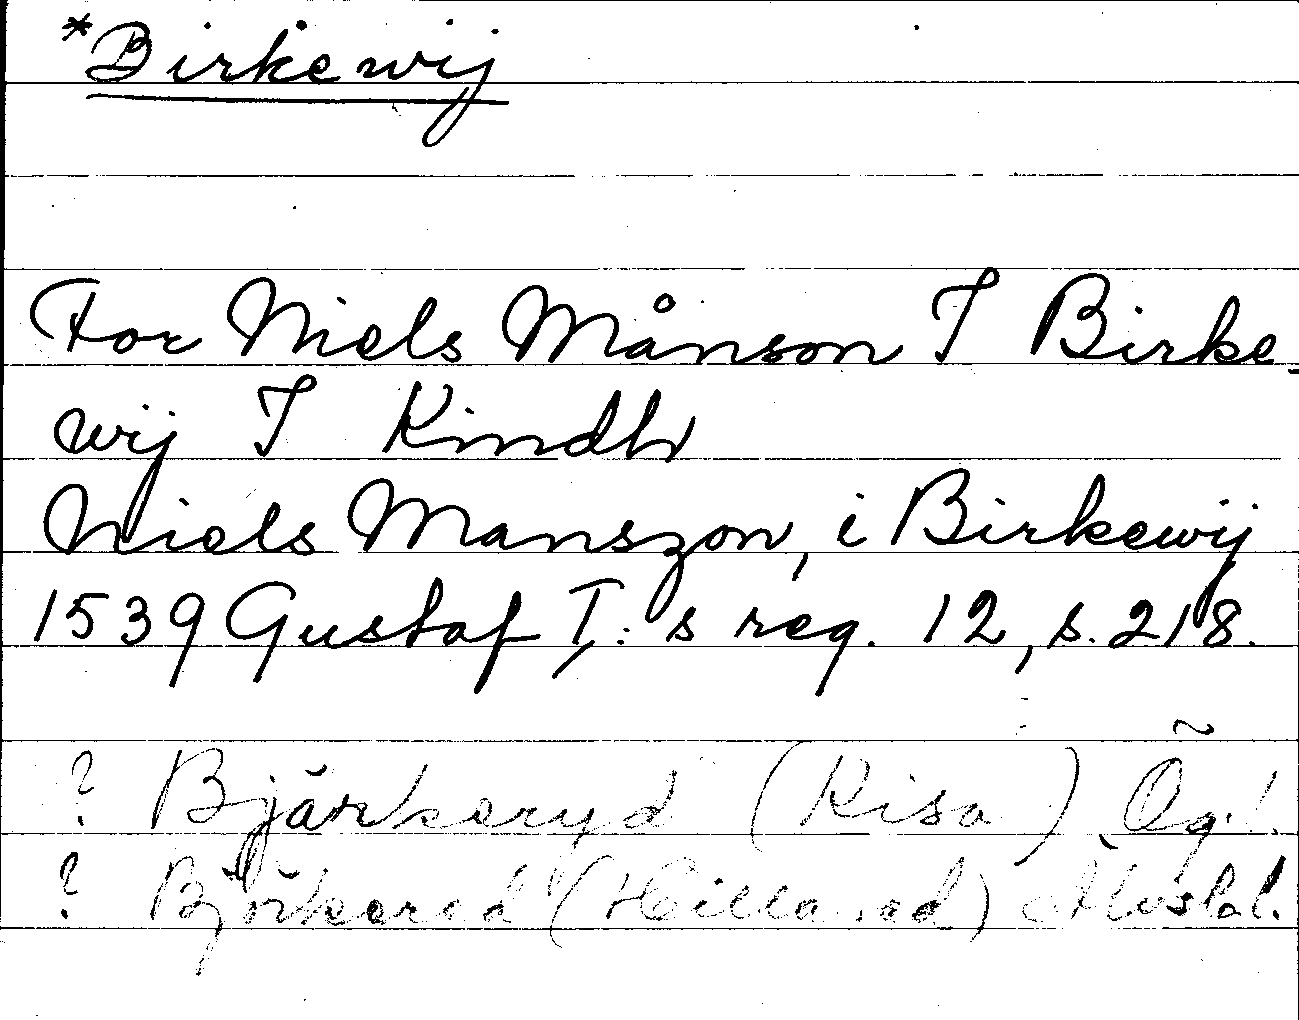 *Birkewij
For Niels Månson I Birke-
wij I Kindh
Niels Manszon, i Birkewij
1539 Gustaf I:s reg. 12, s. 218.
? Bjärkeryd (Kisa) Ög.l.
? Björkered (Hillared) Älvsb.l.